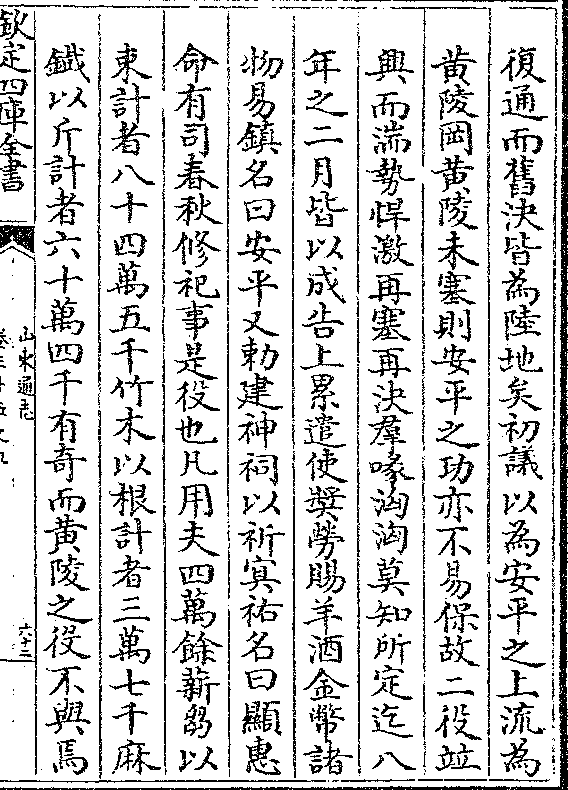 復通而舊決皆為陸地矣初議以為安平之上流為
黄陵岡黄陵未塞則安平之功亦不易保故二役竝
興而湍勢悍激再塞再決羣喙洶洶莫知所定迄八
年之二月皆以成告上累遣使奬勞賜羊酒金幣諸
物易鎮名曰安平又勅建神祠以祈冥祐名曰顯惠
命有司春秋修祀事是役也凡用夫四萬餘薪芻以
束計者八十四萬五千竹木以根計者三萬七千麻
鐵以斤計者六十萬四千有奇而黄陵之役不與焉
欽定四庫全書
山東通志